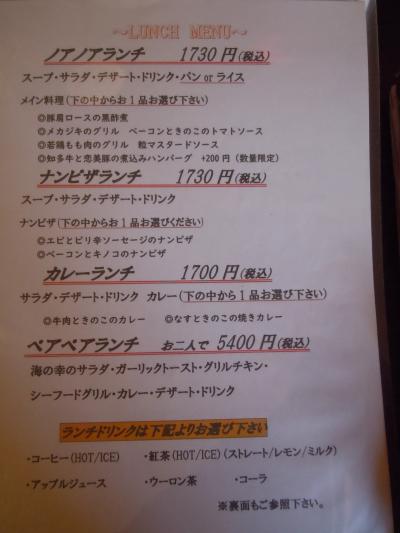 ～LUNCH MENU～
ノアノアランチ 1730円(税込)
スープ・サラダ・デザート・ドリンク・パン or ライス
メイン料理(下の中からお1品お選び下さい)
◎豚肩ロースの黒酢煮
◎メカジキのグリル ベーコンときのこのトマトソース
◎若鶏もも肉のグリル 粒マスタードソース
◎知多牛と恋美豚の煮込みハンバーグ +200円(数量限定)
ナンピザランチ 1730円(税込)
スープ・サラダ・デザート・ドリンク
ナンピザ(下の中からお1品お選びください)
◎エビとピリ辛ソーセージのナンピザ
◎ベーコンとキノコのナンピザ
カレーランチ 1700円(税込)
サラダ・デザート・ドリンク カレー(下の中から1品お選び下さい)
◎牛肉ときのこのカレー ◎なすときのこの焼きカレー
ペアペアランチ お二人で 5400円(税込)
海の幸のサラダ・ガーリックトースト・グリルチキン・
シーフードグリル・カレー・デザート・ドリンク
ランチドリンクは下記よりお選び下さい
・コーヒー(HOT/ICE) ・紅茶(HOT/ICE)(ストレート/レモン/ミルク)
・アップルジュース ・ウーロン茶 ・コーラ
※裏面もご参照下さい。